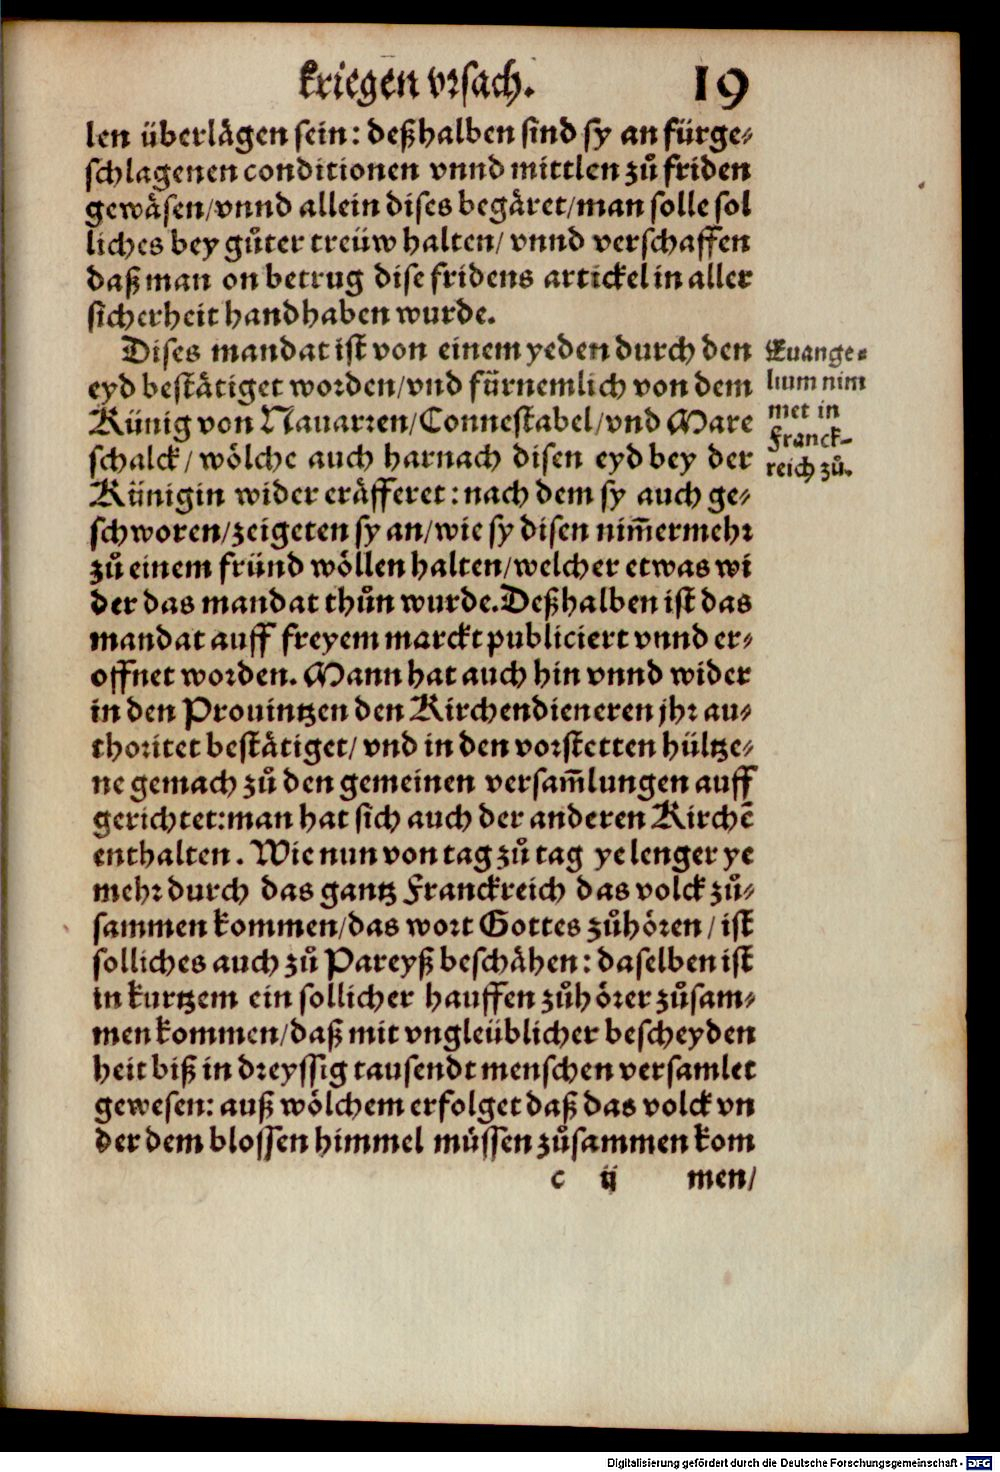 kriegen vrsach. 19
len überlägen sein: deßhalben sind sy an fürge⸗
schlagenen conditionen vnnd mittlen zů friden
gewäsen/vnnd allein dises begäret/man solle sol
liches bey gůter treüw halten/ vnnd verschaffen
daß man on betrug dise fridens artickel in aller
sicherheit handhaben wurde.
Dises mandat ist von einem yeden durch den
eyd bestätiget worden/vnd fürnemlich von dem
Künig von Nauarren/Connestabel/vnd Mare
schalck/ wölche auch harnach disen eyd bey der
Künigin wider eräfferet: nach dem sy auch ge⸗
schworen/zeigeten sy an/wie sy disen nim̄ermehr
zů einem fründ wöllen halten/welcher etwas wi
der das mandat thůn wurde. Deßhalben ist das
mandat auff freyem marckt publiciert vnnd er⸗
offnet worden. Mann hat auch hin vnnd wider
in den Prouintzen den Kirchendieneren jhr au⸗
thoritet bestätiget/ vnd in den vorstetten hültze⸗
ne gemach zů den gemeinen versam̄lungen auff
gerichtet: man hat sich auch der anderen Kirchē
enthalten. Wie nun von tag zů tag ye lenger ye
mehr durch das gantz Franckreich das volck zů⸗
sammen kommen/das wort Gottes zůhören/ ist
solliches auch zů Pareyß beschähen: daselben ist
in kurtzem ein sollicher hauffen zůhörer zůsam⸗
men kommen/daß mit vngleüblicher bescheyden
heit biß in dreyssig tausendt menschen versamlet
gewesen: auß wölchem erfolget daß das volck vn
der dem blossen himmel müssen zůsammen kom
c ij men/
Euange⸗
lium nim
met in
Franck⸗
reich zů.
Digitalisierung gefördert durch die Deutsche Forschungsgemeinschaft - DFG